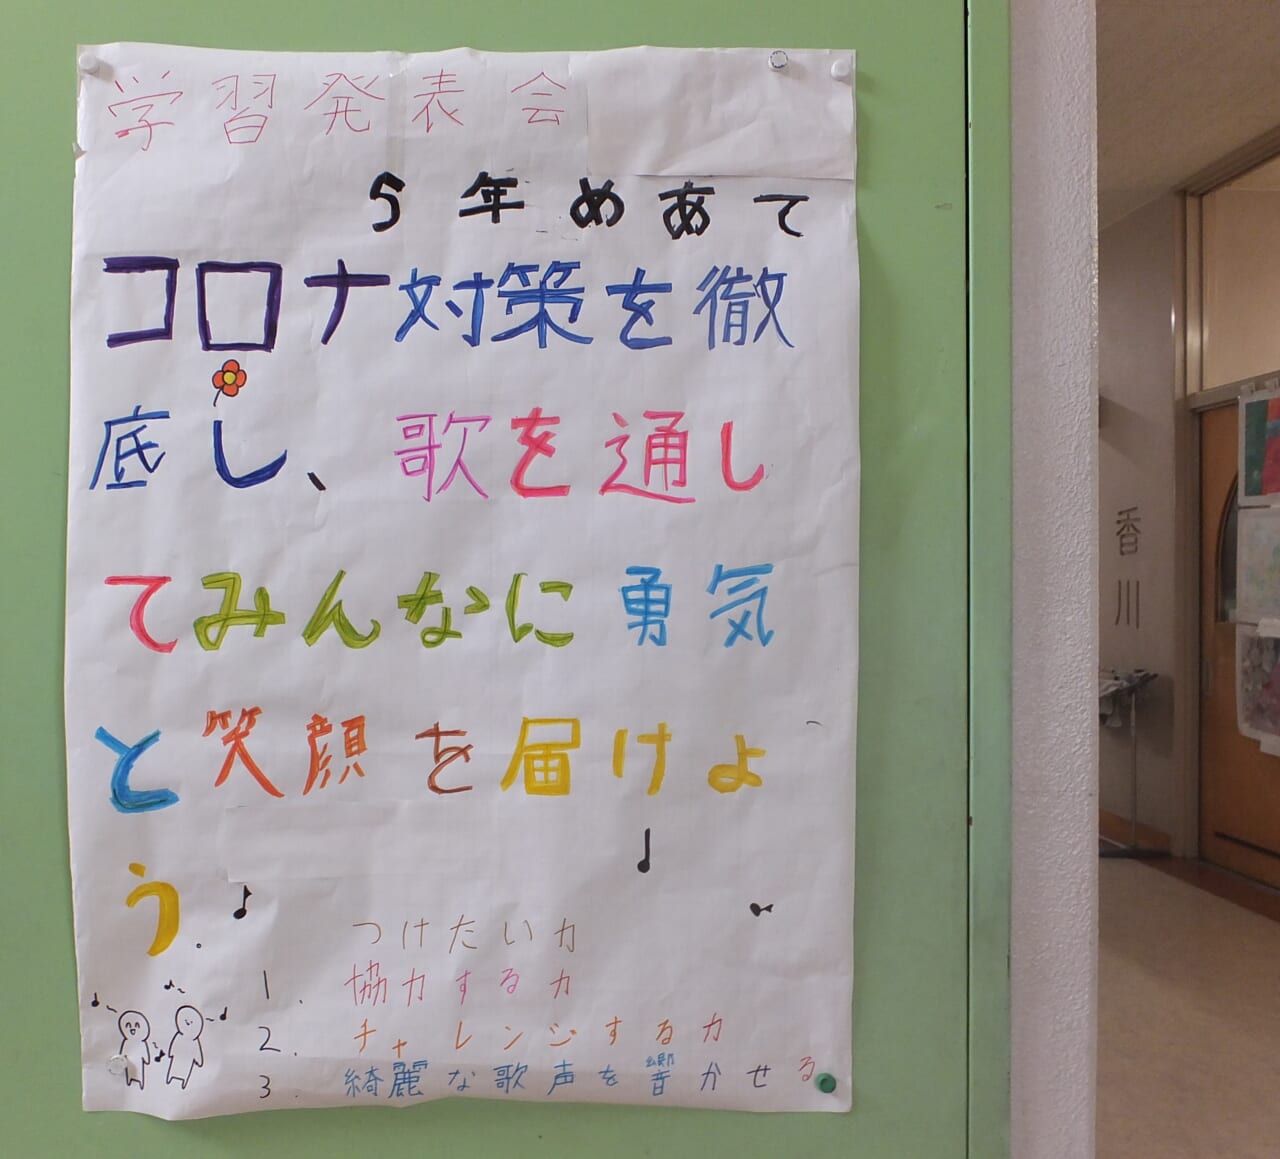 学習発表会
5年めあて
コロナ対策を徹
底し、歌を通し
てみんなに勇気
と笑顔を届けよ
う.
つけたい力
1. 協力する力
2. チャレンジする力
3. 綺麗な歌声を響かせる
香川